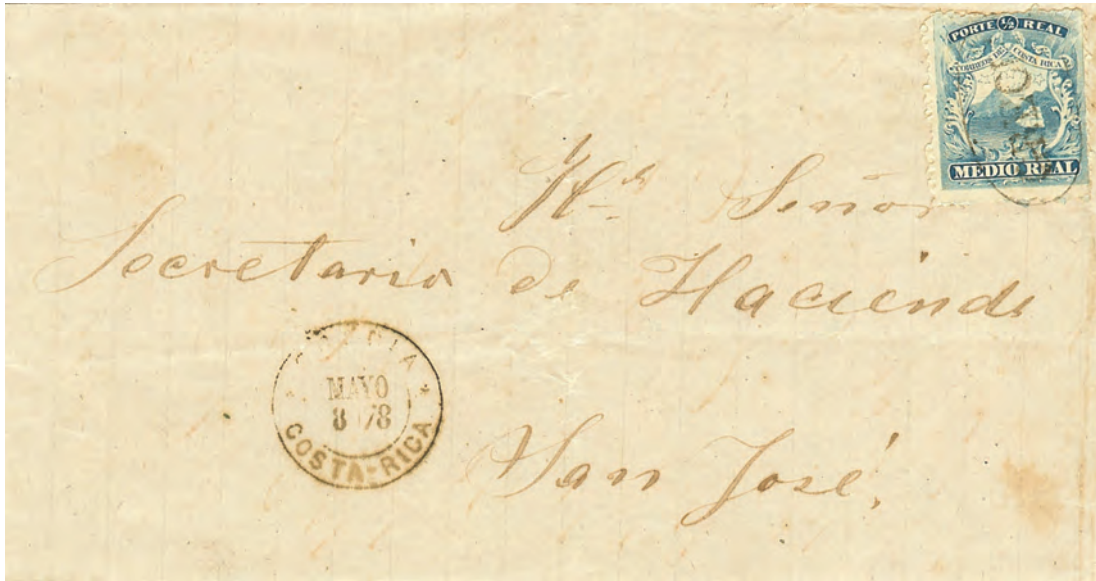 PORTE ½ REAL
CORREOS DE COSTA RICA
MEDIO REAL
Señor
Secretario de Hacienda
MAYO
8 78
COSTA-RICA
San José.